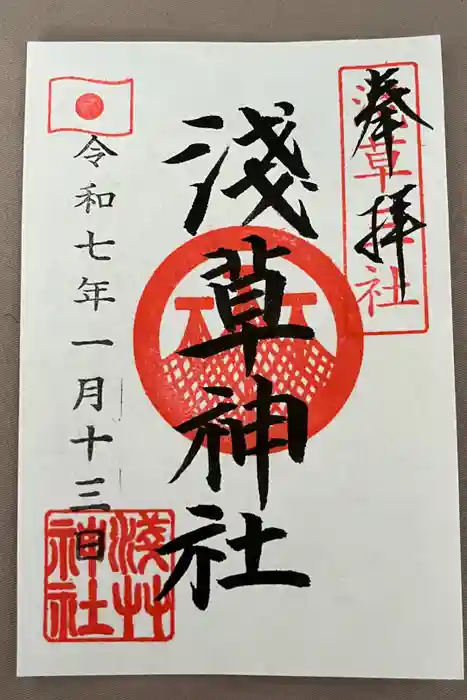 奉拝
淺草神社
淺草神社
令和七年一月十三日
淺草神社